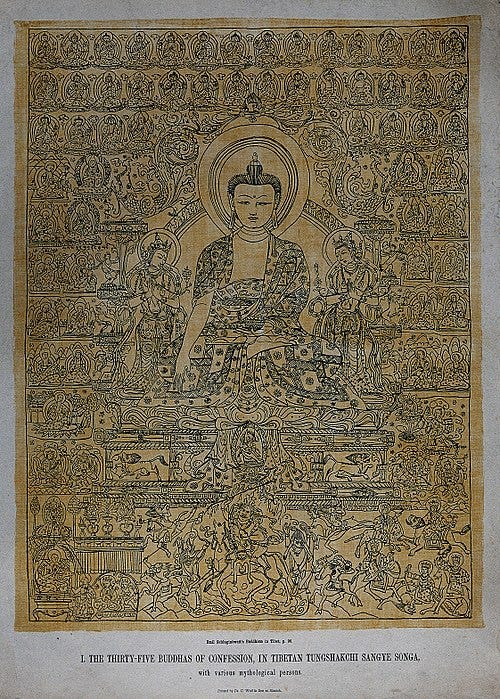 Emil Schlagintweit's Buddhism in Tibet, p. 96.
I. THE THIRTY-FIVE BUDDHAS OF CONFESSION, IN TIBETAN TUNGSHAKCHI SANGYE SONGA,
with various mythological persons.
Printed by Dr. C. Wolf & Son at Munich.